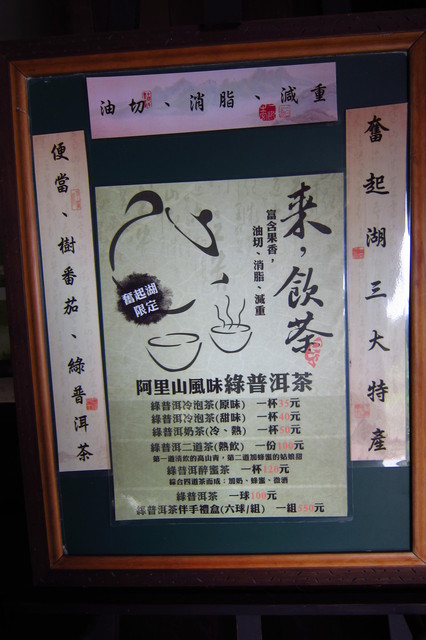 油切、消脂、減重
奮起湖三大特產
便當、樹番茄、綠普洱茶
來，飲茶
富含果香，
油切、消脂、減重
奮起湖
限定
阿里山風味綠普洱茶
綠普洱冷泡茶(原味) 一杯35元
綠普洱冷泡茶(甜味) 一杯40元
綠普洱奶茶(冷、熱) 一杯50元
綠普洱二道茶(熱飲) 一份100元
第一道清飲的高山青，第二道加蜂蜜的姑娘甜
綠普洱醉蜜茶 一杯120元
綜合四道茶而成：加奶、蜂蜜、微酒
綠普洱茶 一球100元
綠普洱茶伴手禮盒(六球/組) 一組550元